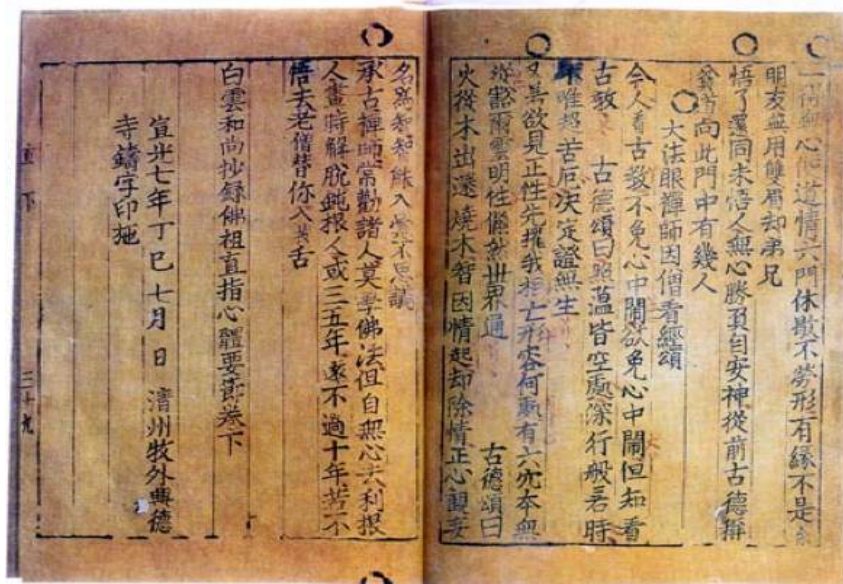 一得無心便道情六門休歇不勞形有緣不是余
朋友無用雙眉却弟兄
悟了還同未悟人無心勝負自安神從前古德稱
貧道向此門中有幾人
大法眼禪師因僧看經頌
今人看古教不免心中鬧欲免心中鬧但知看
古教 古德頌曰照蘊皆空處深行般若時
唯超苦厄决定證無生
欲見正性先摧我相亡形容何處有六 本無
縱豁爾雲明性儼然世界通 古德頌曰
火從木出還燒木智因情起却除情正心觀妄
名爲智智能入處不思議
承古禪師常勸諸人莫學佛法但自無心去利根
人晝時解脫鈍根人或三五年遠不過十年若不
悟去老僧替你入 舌
白雲和尚抄錄佛祖直指心體要節卷下
宣光七年丁巳七月 日 清州牧外興德
寺鑄字印施
直下
三十九